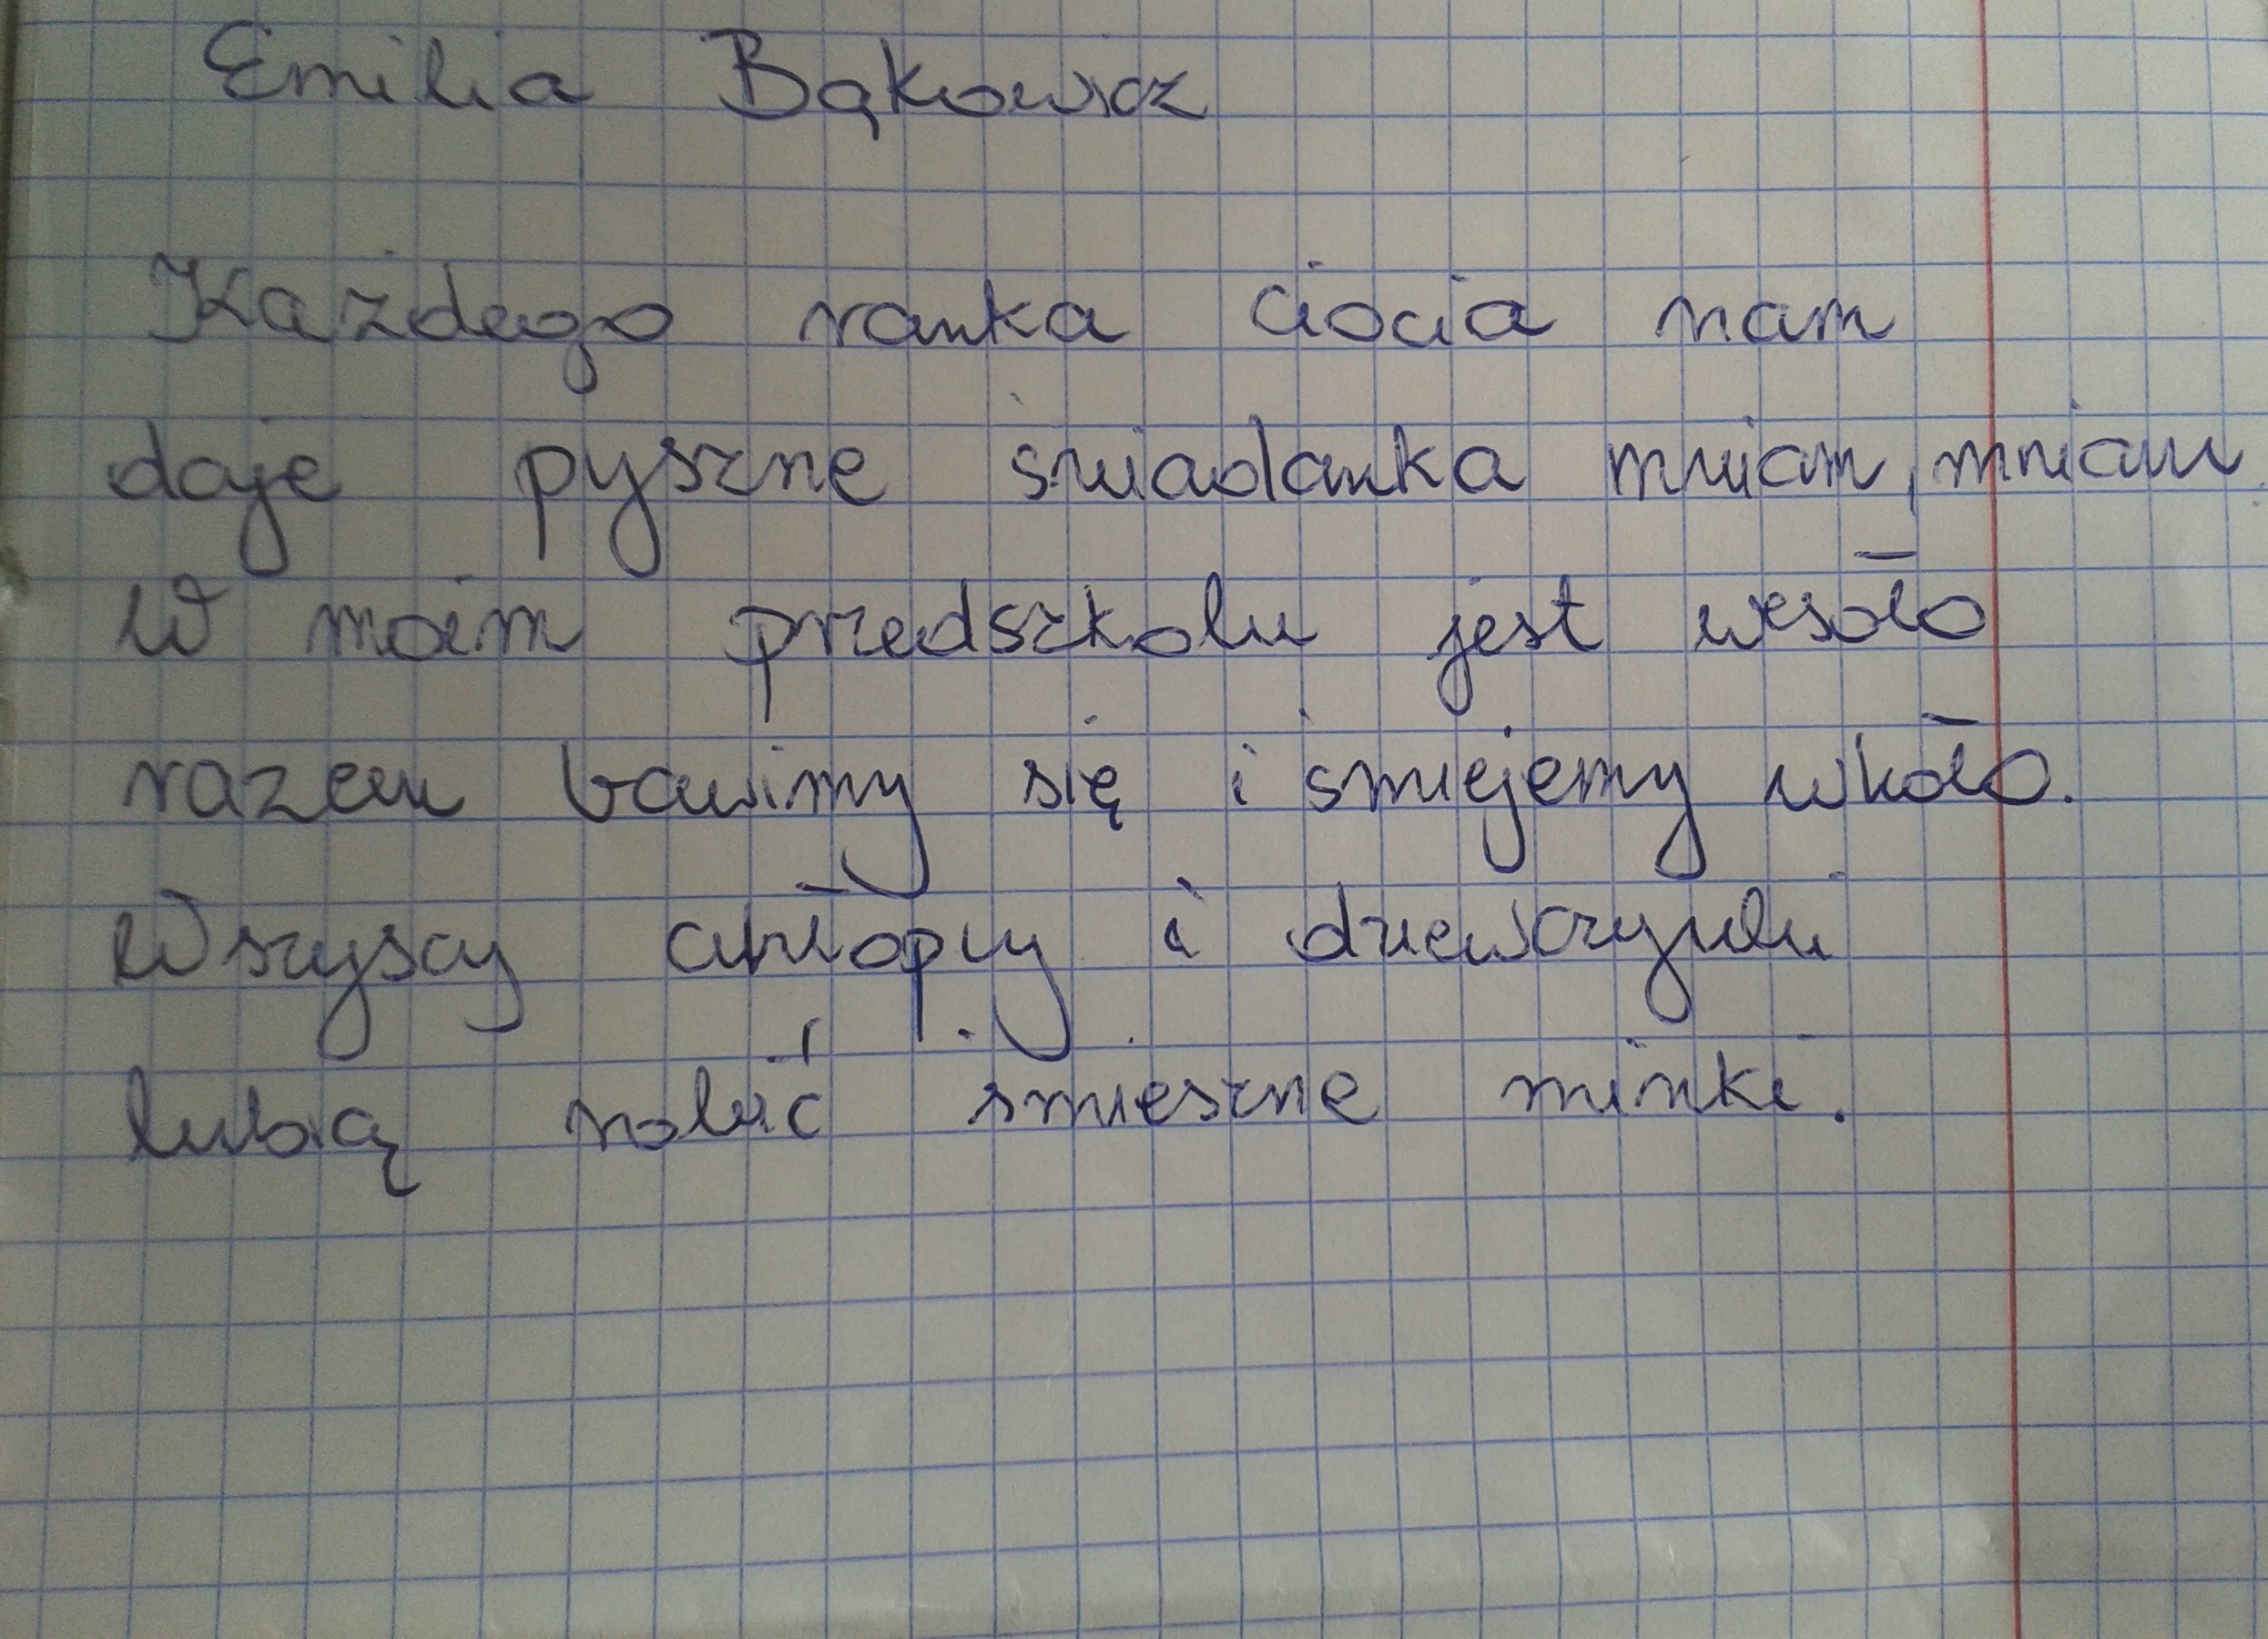 Emilia Bąkowicz
Każdego ranka ciocia nam
daje pyszne śniadanka mniam, mniam.
W moim przedszkolu jest wesoło
razem bawimy się i śmiejemy wkoło.
Wszyscy chłopcy i dziewczynki
lubią robić śmieszne minki.